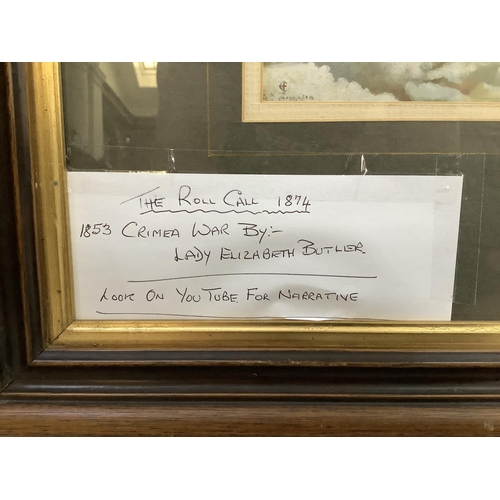 THE ROLL CALL 1874
1853 CRIMEA WAR BY:-
LADY ELIZABETH BUTLER
LOOK ON YOUTUBE FOR NARRATIVE